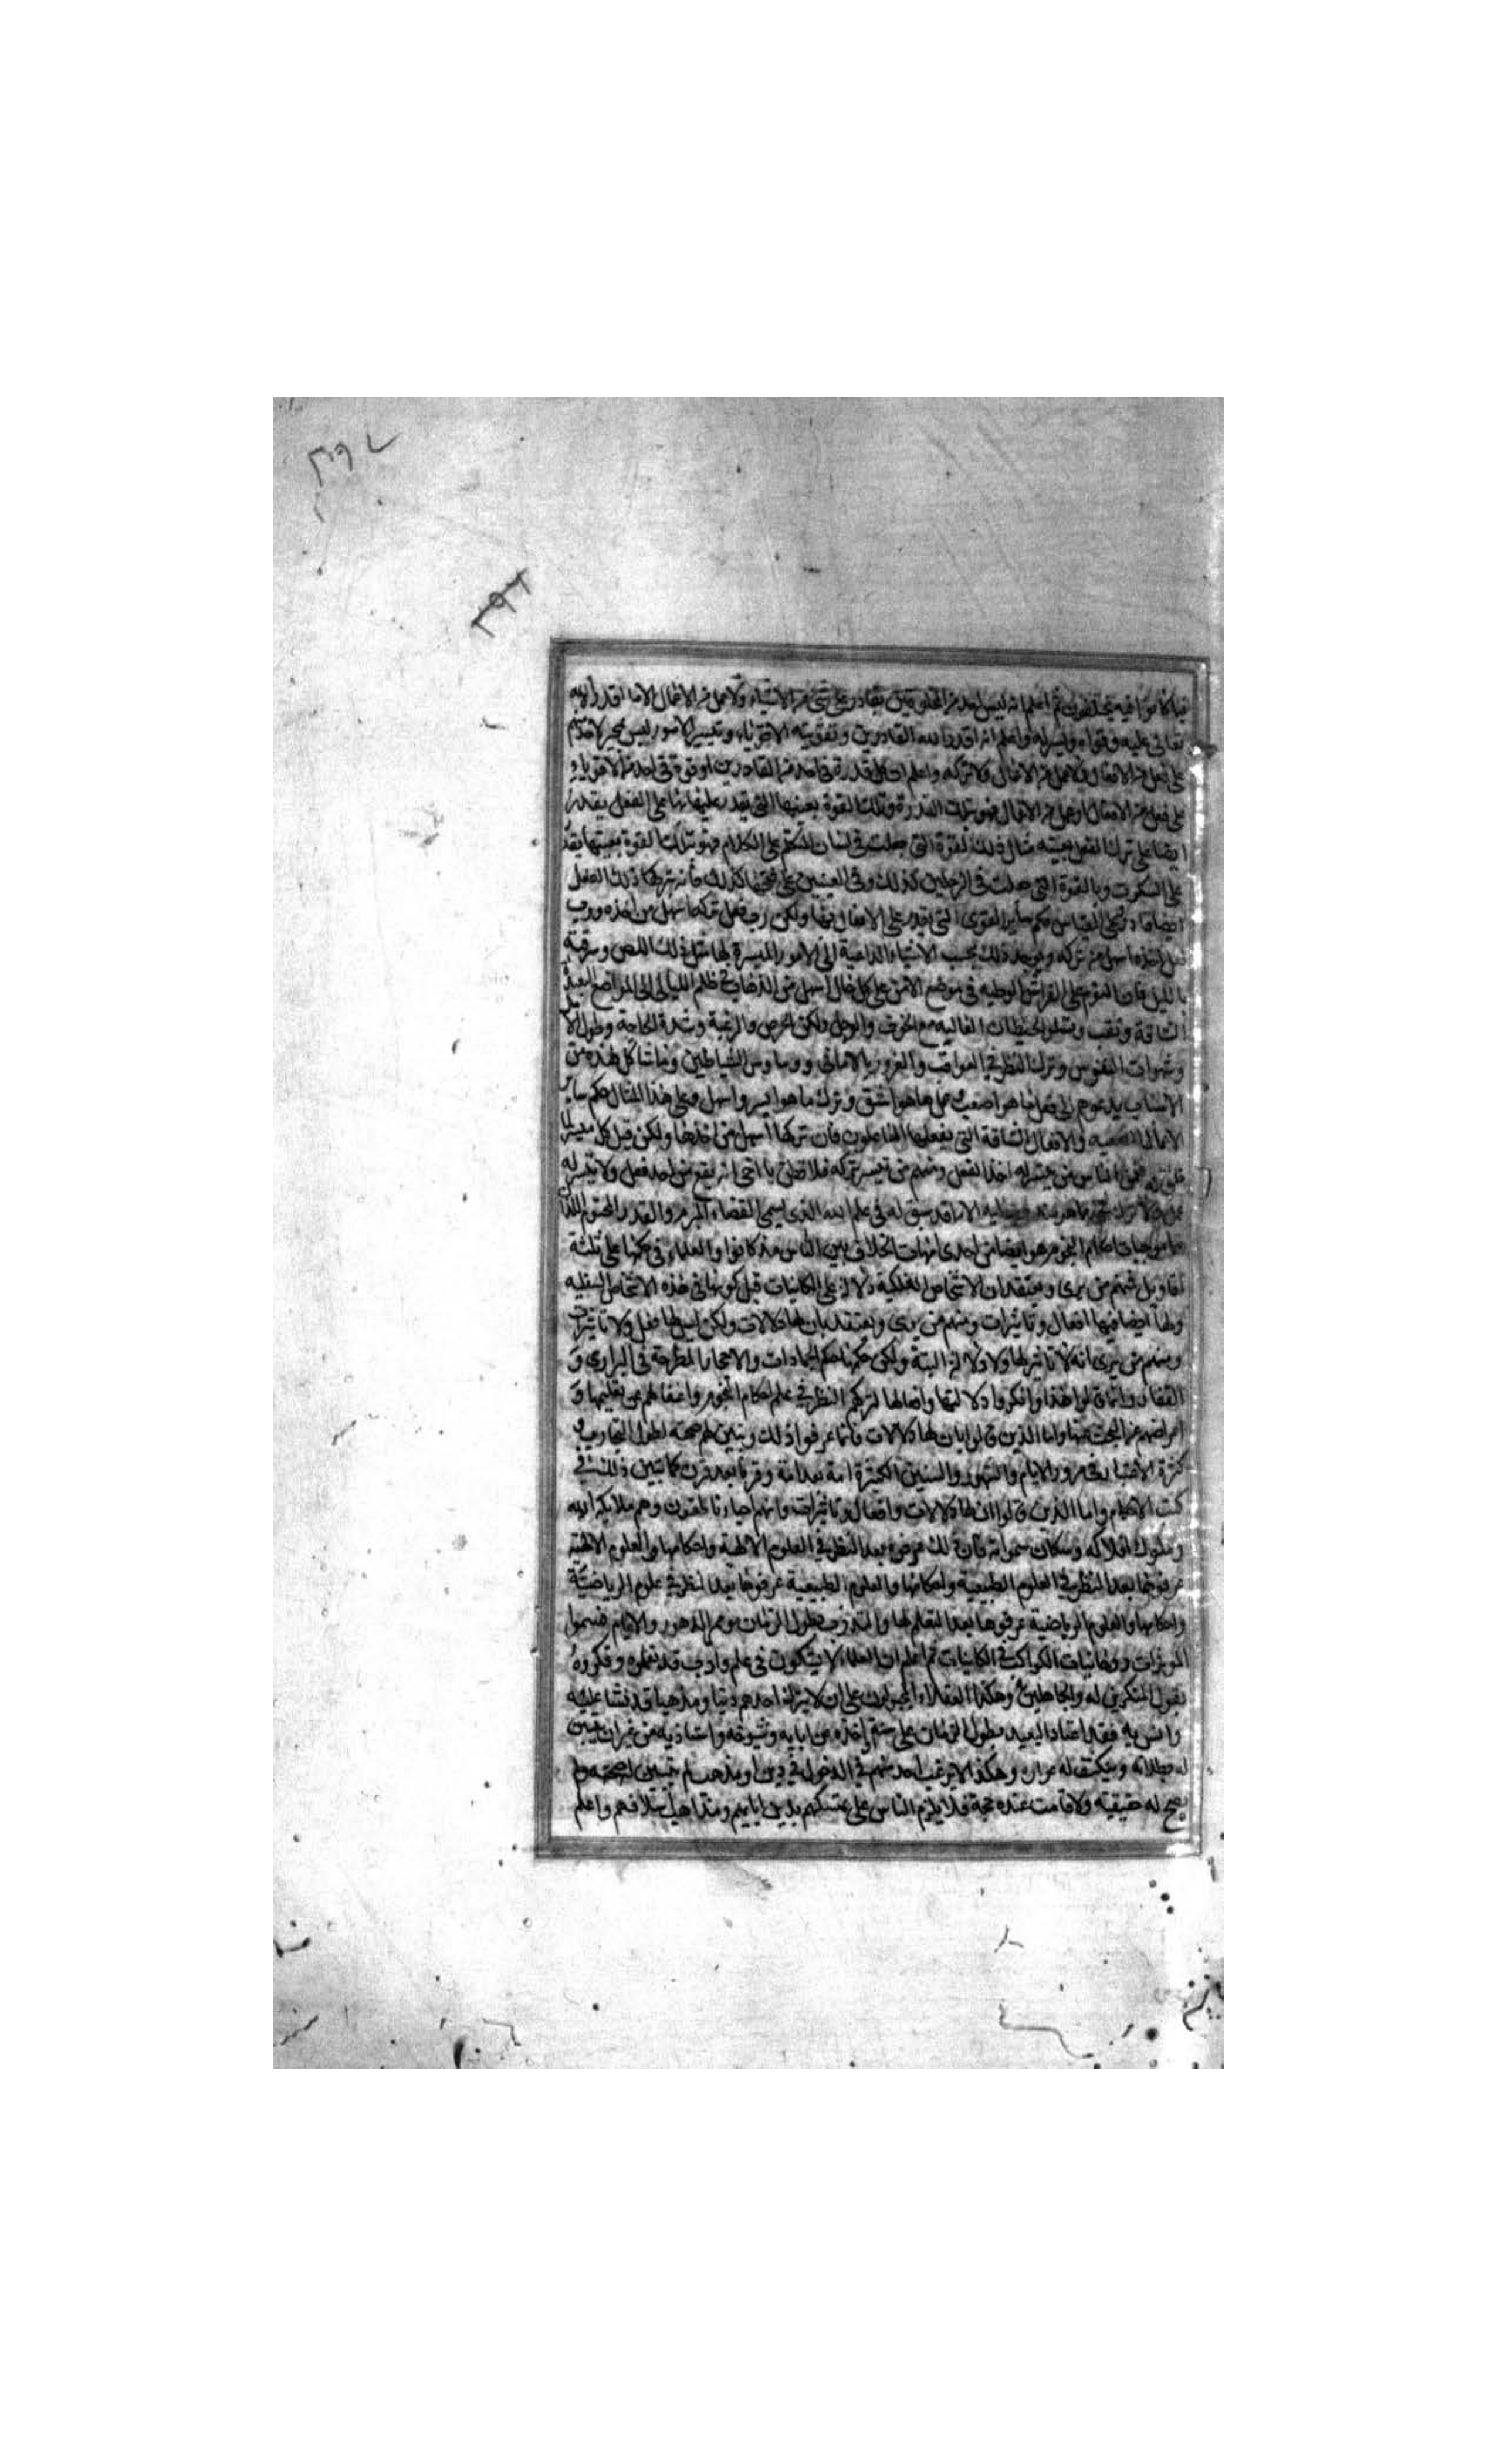 ٣٩٧
٣٩٦
فيما كانوا فيه يختلفون ثم اعلم انه ليس احد من المخلوقين بقادر على شئ من الاشياء ولا عمل من الاعمال الا ما اقدره الله
تعالى عليه وقواه ويسره له واعلم ان اقدار الله القادرين وتقويته الاقوياء وتيسير الامور ليس بجبر لاحد منهم
على فعل من الافعال ولا عمل من الاعمال ولا تركه واعلم ان كل قدرة في احد من القادرين او قوة في احد من الاقوياء
على فعل من الافعال او عمل من الاعمال فهو بتلك القدرة وتلك القوة بعينها التي يقدر عليها بها على الفعل يقدر
ايضا على ترك الفعل بعينه مثال ذلك القوة التي جعلت في لسان المتكلم على الكلام فهو بتلك القوة بعينها يقدر
على السكوت وبالقوة التي جعلت في الرجلين كذلك وفي العينين على فتحها كذلك فانه بتركها ذلك الفعل
ايضا قادر وعلى القياس حكم سائر القوى التي يقدر على الافعال بها ولكن رب فعل تركه اسهل من اخذه ورب
فعل اخذه اسهل من تركه ويوجد ذلك بحسب الاشياء الداعية الى الامور الميسرة لها مثل ذلك اللص وسرقته
بالليل فان النوم على الفراش الوطيه في موضع الامن على كل حال اسهل من الذهاب في ظلم الليالي الى المواضع البعيدة
الشاقة ونقب وتسلق الحيطان العاليه مع الخوف والوجل ولكن الحرص والرغبة وشدة الحاجة وطول الامل
وشهوات النفوس وترك النظر في العواقب والغرور بالاماني ووساوس الشياطين وما شاكل هذه من
الاسباب يدعوهم الى فعل ما هو اصعب وعمل ما هو اشق وترك ما هو ايسر واسهل وعلى هذا المثال حكم ساير
الاعمال الصعبه والافعال الشاقة التي يفعلها الفاعلون فان تركها اسهل من اخذها ولكن قيل كل ميسر لما
خلق له فمن الناس من يتيسر له اخذ الفعل ومنهم من تيسر تركه فلا تظن يا اخي انه يقع من احد فعل ولا يتيسر له
عمل ولا ترك شئ الا ما قد سبق له في علم الله الذي يسمى القضاء المبرم والقدر المحتوم اللذان
هما موجبات احكام النجوم هو ايضا من احدى امهات الخلاف بين الناس مذ كانوا والعلماء في حكمها على ثلثة
اقاويل فمنهم من يرى ويعتقد ان الاشخاص الفلكية دلالة على الكاينات قبل كونها في هذه الاشخاص السفليه
ولها ايضا فيها افعال وتاثيرات ومنهم من يرى ويعتقد بان لها دلالات ولكن ليس لها فعل ولا تاثيرات
ومنهم من يرى انه لا تاثير لها ولا دلالة البتة ولكن حكمها حكم الجمادات والاحجار المطرحة في البراري و
القفار وانما قالوا هذا وانكروا دلالتها وافعالها لتركهم النظر في علم احكام النجوم واغفالهم عن تعليمها و
اعراضهم عن البحث عنها واما الذين قالوا بان لها دلالات فانما عرفوا ذلك وتبين لهم صحته لطول التجارب و
كثرة الاعتبار في مرور الايام والشهور والسنين الكثيرة امة بعد امة وقرنا بعد قرن كما تبين ذلك في
كتب الاحكام واما الذين قالوا ان لها دلالات وافعال وتاثيرات وانهم احياء ناطقون وهم ملايكة الله
وملوك افلاكه وسكان سمواته فان ذلك عرفوه بعد النظر في العلوم الالهية واحكامها والعلوم الالهية
عرفوها بعد النظر في العلوم الطبيعية واحكامها والعلوم الطبيعية عرفوها بعد النظر في علوم الرياضية
واحكامها والعلوم الرياضية عرفوها بعد التعلم لها والتدرب بطول الزمان ومر الدهور والايام
الموثرات روحانيات الكواكب في الكاينات ثم اعلم ان العلماء لا يشكون في علم وادب قد تعلموه وفكروه
بقول المنكرين له والجاهلين وهكذا العقلاء المجبولون على ان لا يترك احدهم دينا ومذهبا قد نشا عليه
وانس به فقد اعتاد التعبد بطول الزمان على سنة اخذه عن ابايه وشيوخه واستاذيه من غير ان يتبين
له بطلانه وينكشف له عواره وهكذا لا يرغب احد منهم في الدخول في دين او مذهب لم يتبين له صحته ولم
يصح له حقيقيته ولا قامت عنده حجة فلا يلزم الناس على تمسكهم بدين ابايهم ومذاهب اسلافهم واعلم